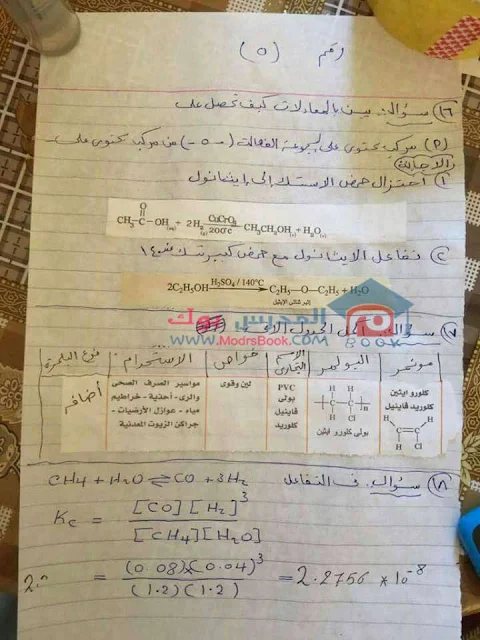 رقم (٥)
١٦) سؤال: بين بالمعادلات كيف تحصل على
(٩) مركب يحتوى على المجموعة الفعالة (-٥-) من مركب يحتوى على
(الاجابة)
١) اختزال حمض الاستيك إلى إيثانول
CH₃-C(=O)-OH(aq) + 2H₂(g) CuCrO₄ 200°C CH₃CH₂OH(v) + H₂O(v)
٢) تفاعل الايثانول مع حمض كبريتيك ١٤٠
2C₂H₅OH H₂SO₄ / 140°C → C₂H₅—O—C₂H₅ + H₂O
إثير ثنائى الإيثيل
المدرس بوك
www.ModrsBook.com BOOK
١٧) سؤال: أكمل الجدول
مونمر البوليمر الاسم التجارى خواص الاستخدام نوع البلمرة
كلورو ايثين كلوريد فاينيل
H H C C H Cl
H H C C H Cl n
بولى كلورو ايثين
PVC بولى فاينيل كلوريد
لين وقوى
مواسير الصرف الصحى والرى - أحذية - خراطيم مياه - عوازل الأرضيات - جراكن الزيوت المعدنية
أضافه
١٨) سؤال: فى التفاعل CH4 + H2O ⇌ CO + 3H2
Kc = [CO] [H2]³ / [CH4][H2O]
= (0.08)×(0.04)³ / (1.2)(1.2) = 2.2756 * 10⁻⁸